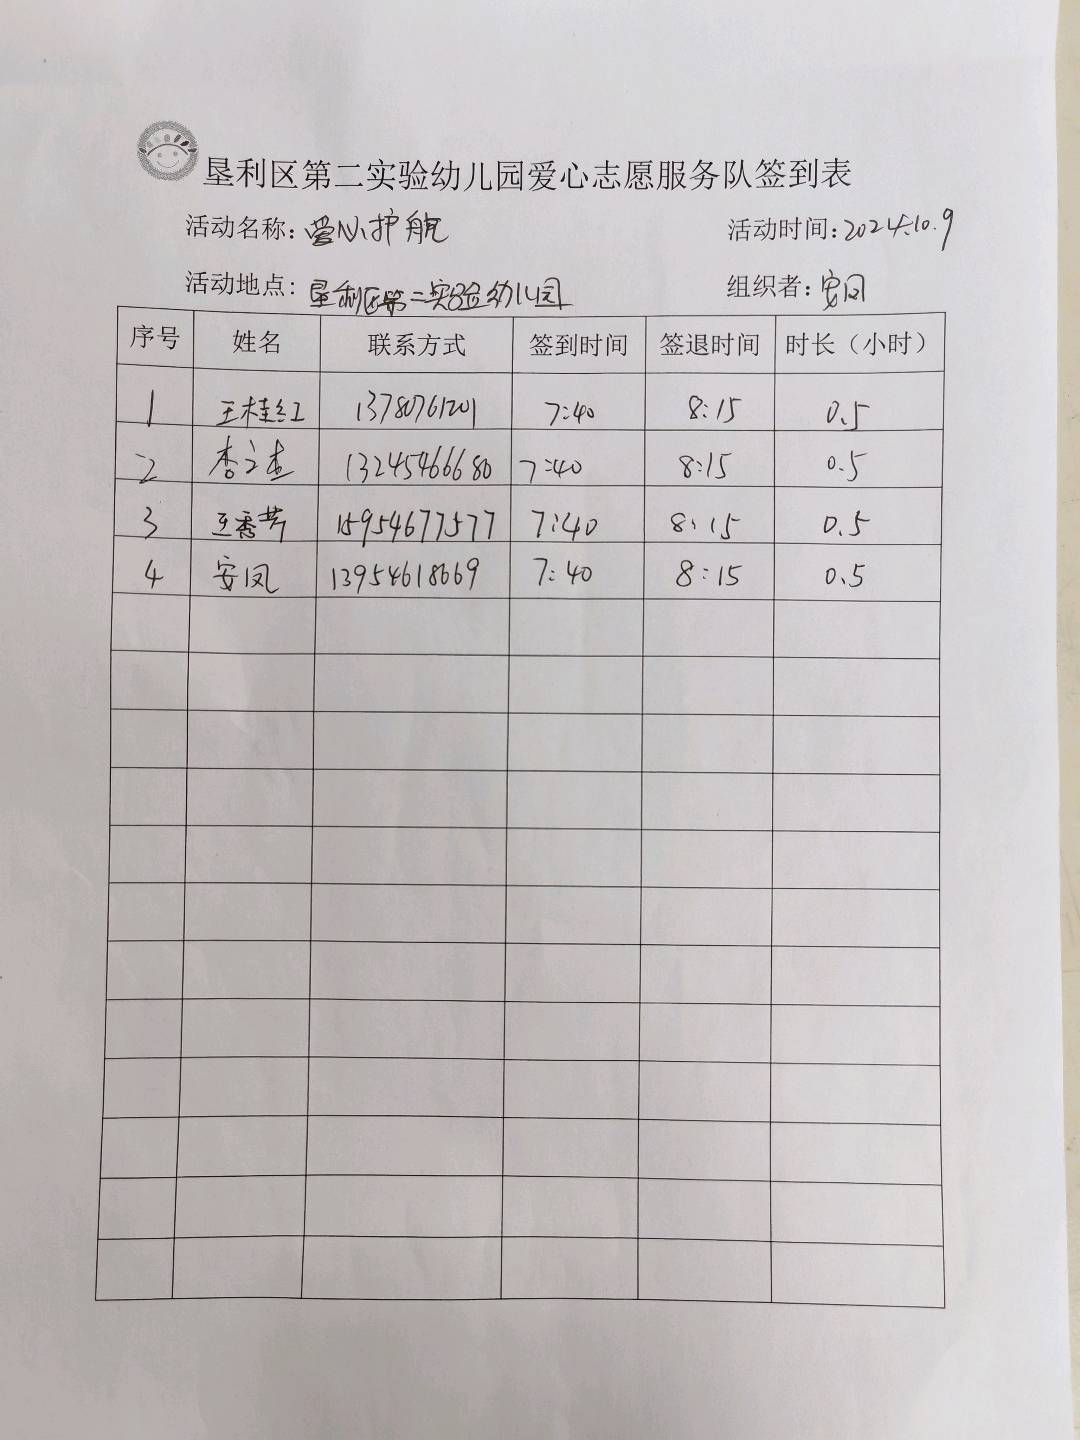 垦利区第二实验幼儿园爱心志愿服务队签到表
活动名称：爱心护航 活动时间：2024.10.9
活动地点：垦利区第二实验幼儿园 组织者：安凤
序号 姓名 联系方式 签到时间 签退时间 时长（小时）
1 王桂红 13780761201 7:40 8:15 0.5
2 李 13245466680 7:40 8:15 0.5
3 王秀芹 15954677577 7:40 8:15 0.5
4 安凤 13954618669 7:40 8:15 0.5